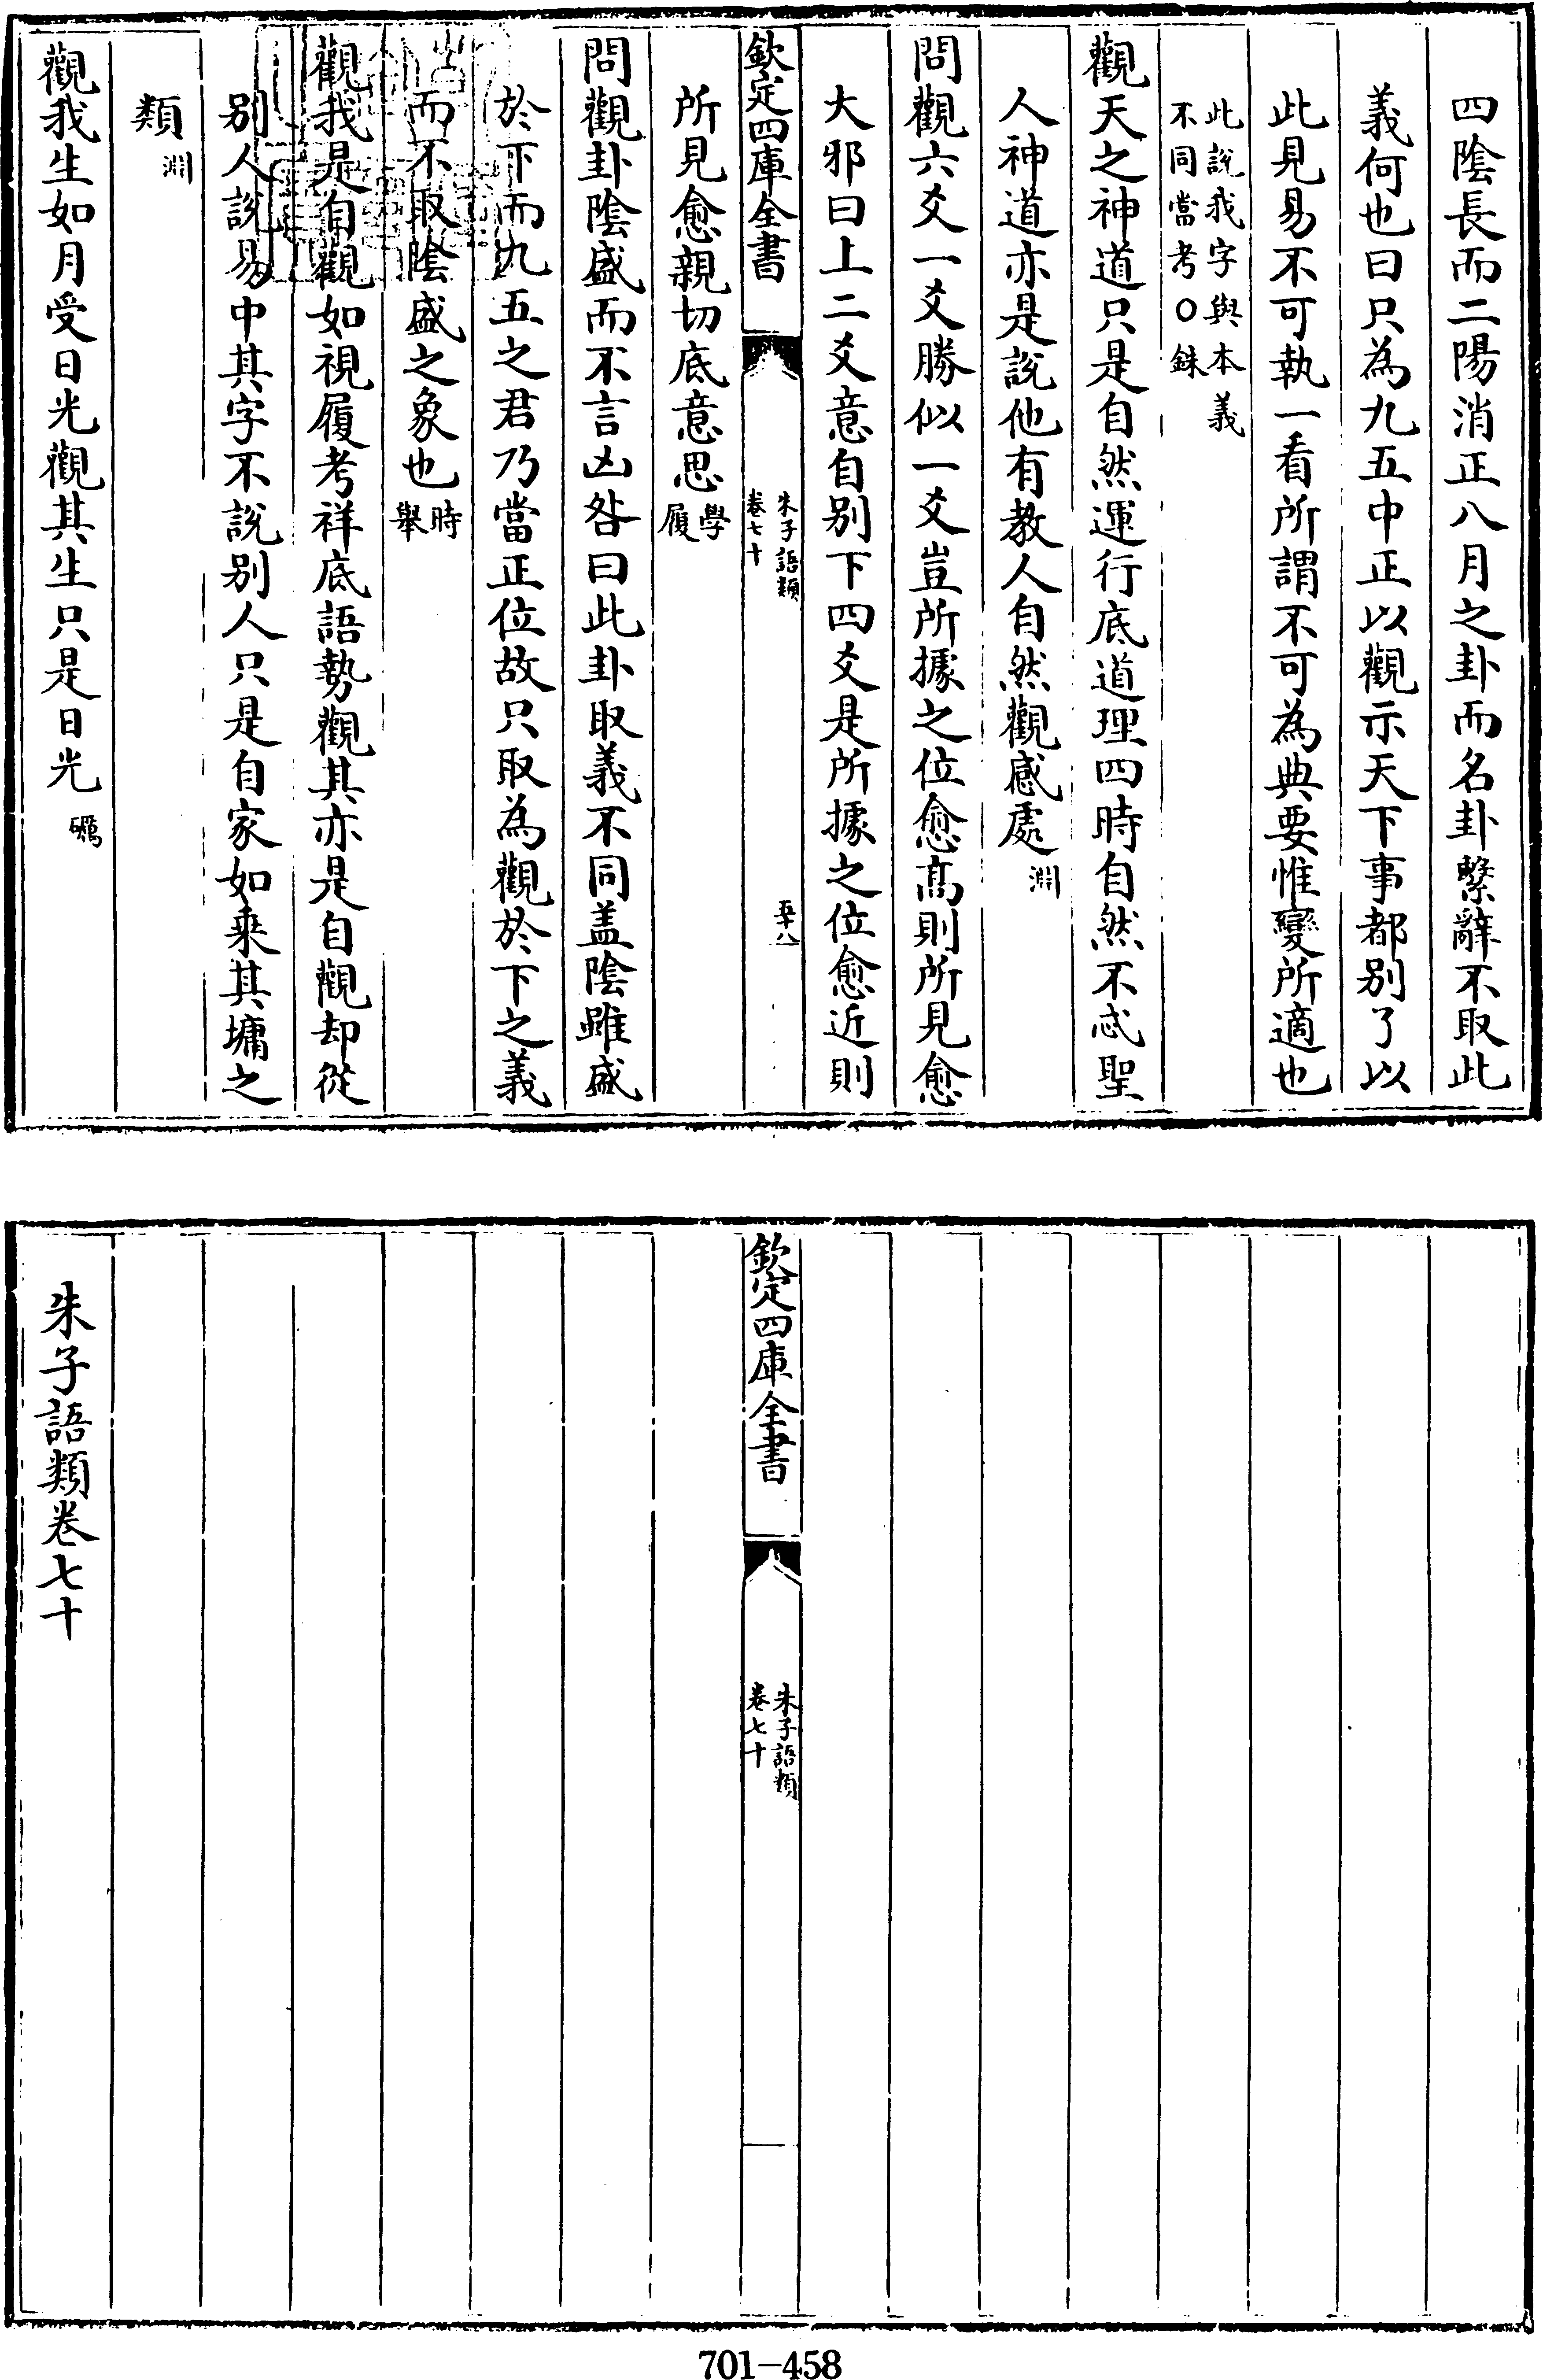 四陰長而二陽消正八月之卦而名卦繫辭不取此
義何也曰只為九五中正以觀示天下事都别了以
此見易不可執一看所謂不可為典要惟變所適也
此說我字與本義
不同當考○銖
觀天之神道只是自然運行底道理四時自然不忒聖
人神道亦是說他有教人自然觀感處淵
問觀六爻一爻勝似一爻豈所據之位愈髙則所見愈
大邪曰上二爻意自别下四爻是所據之位愈近則
欽定四庫全書
朱子語類
卷七十
五十八
所見愈親切底意思學履
問觀卦陰盛而不言凶咎曰此卦取義不同盖陰雖盛
於下而九五之君乃當正位故只取為觀於下之義
而不取陰盛之象也時舉
觀我是自觀如視履考祥底語勢觀其亦是自觀却從
别人說易中其字不說别人只是自家如乗其墉之
類淵
觀我生如月受日光觀其生只是日光礪
欽定四庫全書
朱子語類
卷七十
朱子語類卷七十
701-458